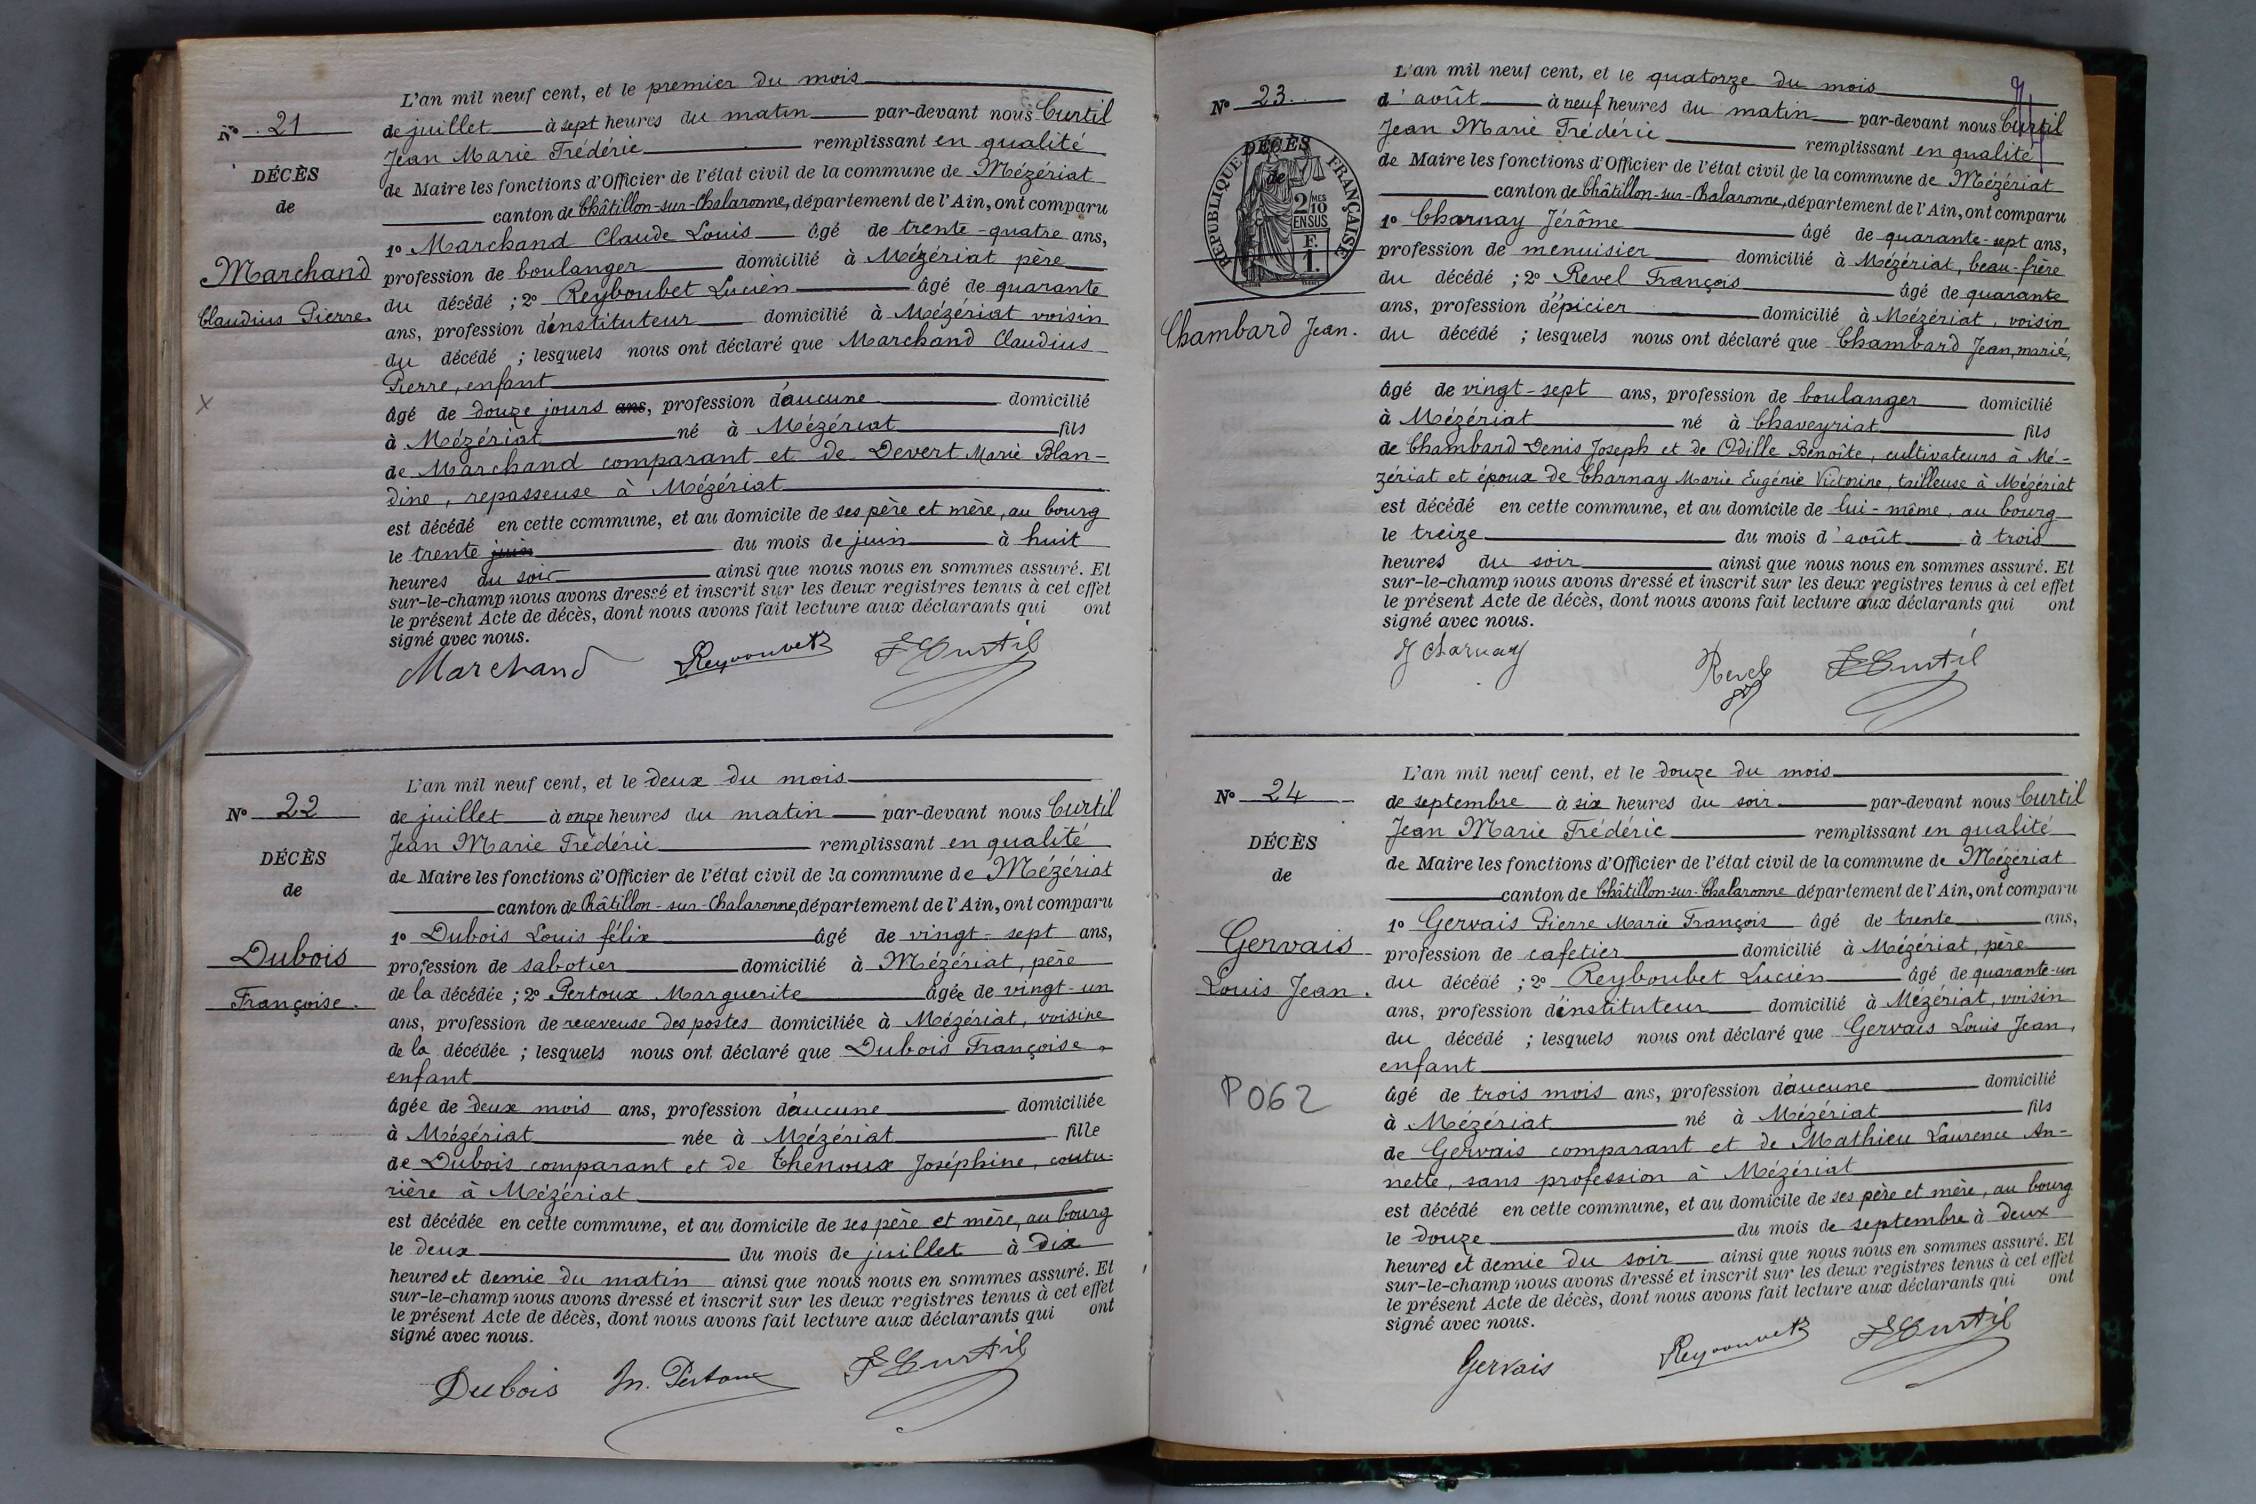 L'an mil neuf cent, et le premier du mois
N° 21
de juillet à sept heures du matin par-devant nous Curtil
Jean Marie Frédéric remplissant en qualité
DÉCÈS
de Maire les fonctions d'Officier de l'état civil de la commune de Mézériat
de
canton de Châtillon-sur-Chalaronne, département de l'Ain, ont comparu
1° Marchand Claude Louis âgé de trente-quatre ans,
Marchand
profession de boulanger domicilié à Mézériat père
Claudius Pierre.
du décédé ; 2° Reyboubet Lucien âgé de quarante
ans, profession d'instituteur domicilié à Mézériat voisin
du décédé ; lesquels nous ont déclaré que Marchand Claudius
Pierre, enfant
x
âgé de douze jours ans, profession d'aucune domicilié
à Mézériat né à Mézériat fils
de Marchand comparant et de Devert Marie Blan-
dine, repasseuse à Mézériat
est décédé en cette commune, et au domicile de ses père et mère, au bourg
le trente juin du mois de juin à huit
heures du soir ainsi que nous nous en sommes assuré. Et
sur-le-champ nous avons dressé et inscrit sur les deux registres tenus à cet effet
le présent Acte de décès, dont nous avons fait lecture aux déclarants qui ont
signé avec nous.
Marchand Reyboubet F Curtil
L'an mil neuf cent, et le deux du mois
N° 22
de juillet à onze heures du matin par-devant nous Curtil
Jean Marie Frédéric remplissant en qualité
DÉCÈS
de Maire les fonctions d'Officier de l'état civil de la commune de Mézériat
de
canton de Châtillon-sur-Chalaronne, département de l'Ain, ont comparu
1° Dubois Louis félix âgé de vingt-sept ans,
Dubois
profession de sabotier domicilié à Mézériat, père
Françoise.
de la décédée ; 2° Pertoux Marguerite âgée de vingt-un
ans, profession de receveuse des postes domiciliée à Mézériat, voisine
de la décédée ; lesquels nous ont déclaré que Dubois Françoise,
enfant
âgée de deux mois ans, profession d'aucune domiciliée
à Mézériat née à Mézériat fille
de Dubois comparant et de Thenoux Joséphine, coutu-
rière à Mézériat
est décédée en cette commune, et au domicile de ses père et mère, au bourg
le deux du mois de juillet à dix
heures et demie du matin ainsi que nous nous en sommes assuré. Et
sur-le-champ nous avons dressé et inscrit sur les deux registres tenus à cet effet
le présent Acte de décès, dont nous avons fait lecture aux déclarants qui ont
signé avec nous.
Dubois M. Pertoux F Curtil
L'an mil neuf cent, et le quatorze du mois
N° 23.
d'août à neuf heures du matin par-devant nous Curtil
Jean Marie Frédéric remplissant en qualité
DÉCÈS
de
RÉPUBLIQUE FRANÇAISE
2/10 MES
EN SUS
F.
1.
de Maire les fonctions d'Officier de l'état civil de la commune de Mézériat
canton de Châtillon-sur-Chalaronne, département de l'Ain, ont comparu
1° Charnay Jérôme âgé de quarante-sept ans,
profession de menuisier domicilié à Mézériat, beau-frère
du décédé ; 2° Revel François âgé de quarante
ans, profession d'épicier domicilié à Mézériat, voisin
Chambard Jean.
du décédé ; lesquels nous ont déclaré que Chambard Jean, marié,
âgé de vingt-sept ans, profession de boulanger domicilié
à Mézériat né à Chaveyriat fils
de Chambard Denis Joseph et de Odille Benoîte, cultivateurs à Mé-
zériat et époux de Charnay Marie Eugénie Victorine, tailleuse à Mézériat
est décédé en cette commune, et au domicile de lui-même, au bourg
le treize du mois d'août à trois
heures du soir ainsi que nous nous en sommes assuré. Et
sur-le-champ nous avons dressé et inscrit sur les deux registres tenus à cet effet
le présent Acte de décès, dont nous avons fait lecture aux déclarants qui ont
signé avec nous.
J Charnay Revel F Curtil
L'an mil neuf cent, et le douze du mois
N° 24
de septembre à six heures du soir par-devant nous Curtil
Jean Marie Frédéric remplissant en qualité
DÉCÈS
de Maire les fonctions d'Officier de l'état civil de la commune de Mézériat
de
canton de Châtillon-sur-Chalaronne département de l'Ain, ont comparu
1° Gervais Pierre Marie François âgé de trente ans,
Gervais
profession de cafetier domicilié à Mézériat, père
Louis Jean.
du décédé ; 2° Reyboubet Lucien âgé de quarante-un
ans, profession d'instituteur domicilié à Mézériat, voisin
du décédé ; lesquels nous ont déclaré que Gervais Louis Jean,
enfant
P062
âgé de trois mois ans, profession d'aucune domicilié
à Mézériat né à Mézériat fils
de Gervais comparant et de Mathieu Laurence An-
nette, sans profession à Mézériat
est décédé en cette commune, et au domicile de ses père et mère, au bourg
le douze du mois de septembre à deux
heures et demie du soir ainsi que nous nous en sommes assuré. Et
sur-le-champ nous avons dressé et inscrit sur les deux registres tenus à cet effet
le présent Acte de décès, dont nous avons fait lecture aux déclarants qui ont
signé avec nous.
Gervais Reyboubet F Curtil